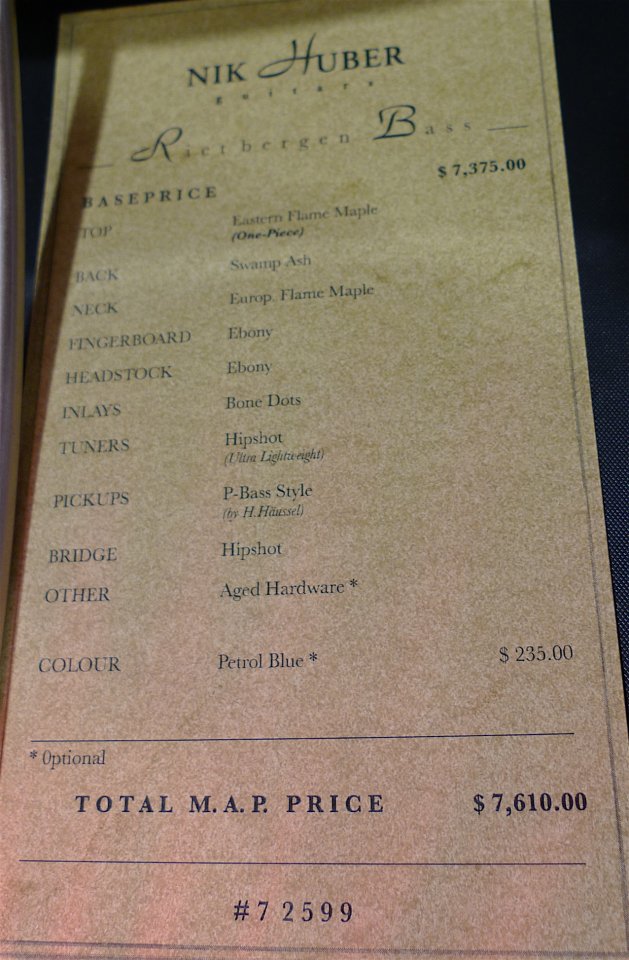 NIK HUBER
guitars
Rietbergen Bass
BASEPRICE $ 7,375.00
TOP Eastern Flame Maple
(One-Piece)
BACK Swamp Ash
NECK Europ. Flame Maple
FINGERBOARD Ebony
HEADSTOCK Ebony
INLAYS Bone Dots
TUNERS Hipshot
(Ultra Lightweight)
PICKUPS P-Bass Style
(by H.Häussel)
BRIDGE Hipshot
OTHER Aged Hardware *
COLOUR Petrol Blue * $ 235.00
* Optional
TOTAL M.A.P. PRICE $ 7,610.00
#7 2599